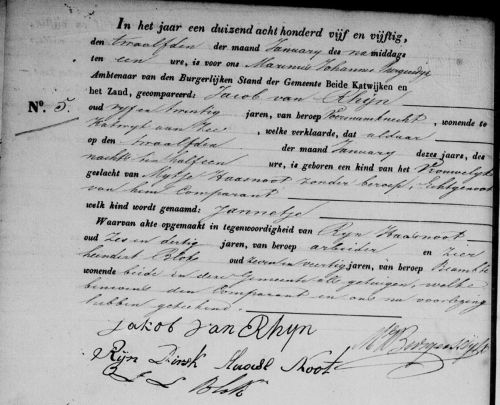 In het jaar een duizend acht honderd vijf en vijftig,
den twaalfden der maand January des na middags
ten een ure, is voor ons Marinus Johannes
Ambtenaar van den Burgerlijken Stand der Gemeente Beide Katwijken en
het Zand, gecompareerd: Jacob van Rhijn
No. 5.
oud vijf en twintig jaren, van beroep wonende te
Katwyk aan Zee, welke verklaarde, dat alhier
op den twaalfden der maand January dezes jaars, des
nachts ten half een ure, is geboren een kind van het Vrouwelyk
geslacht van Haasnoot zonder beroep, Echtgenoot
van hem Comparant
welk kind wordt genaamd: Jannetje
Waarvan akte opgemaakt in tegenwoordigheid van Ryn Haasnoot
oud Zes en dertig jaren, van beroep arbeider en
Blok oud zeven en veertig jaren, van beroep
wonende beide in deze Gemeente als getuigen, welke
benevens den Comparant en ons na voorlezing
hebben geteekend.
Jakob van Rhyn
Ryn Haase Noot
Blok